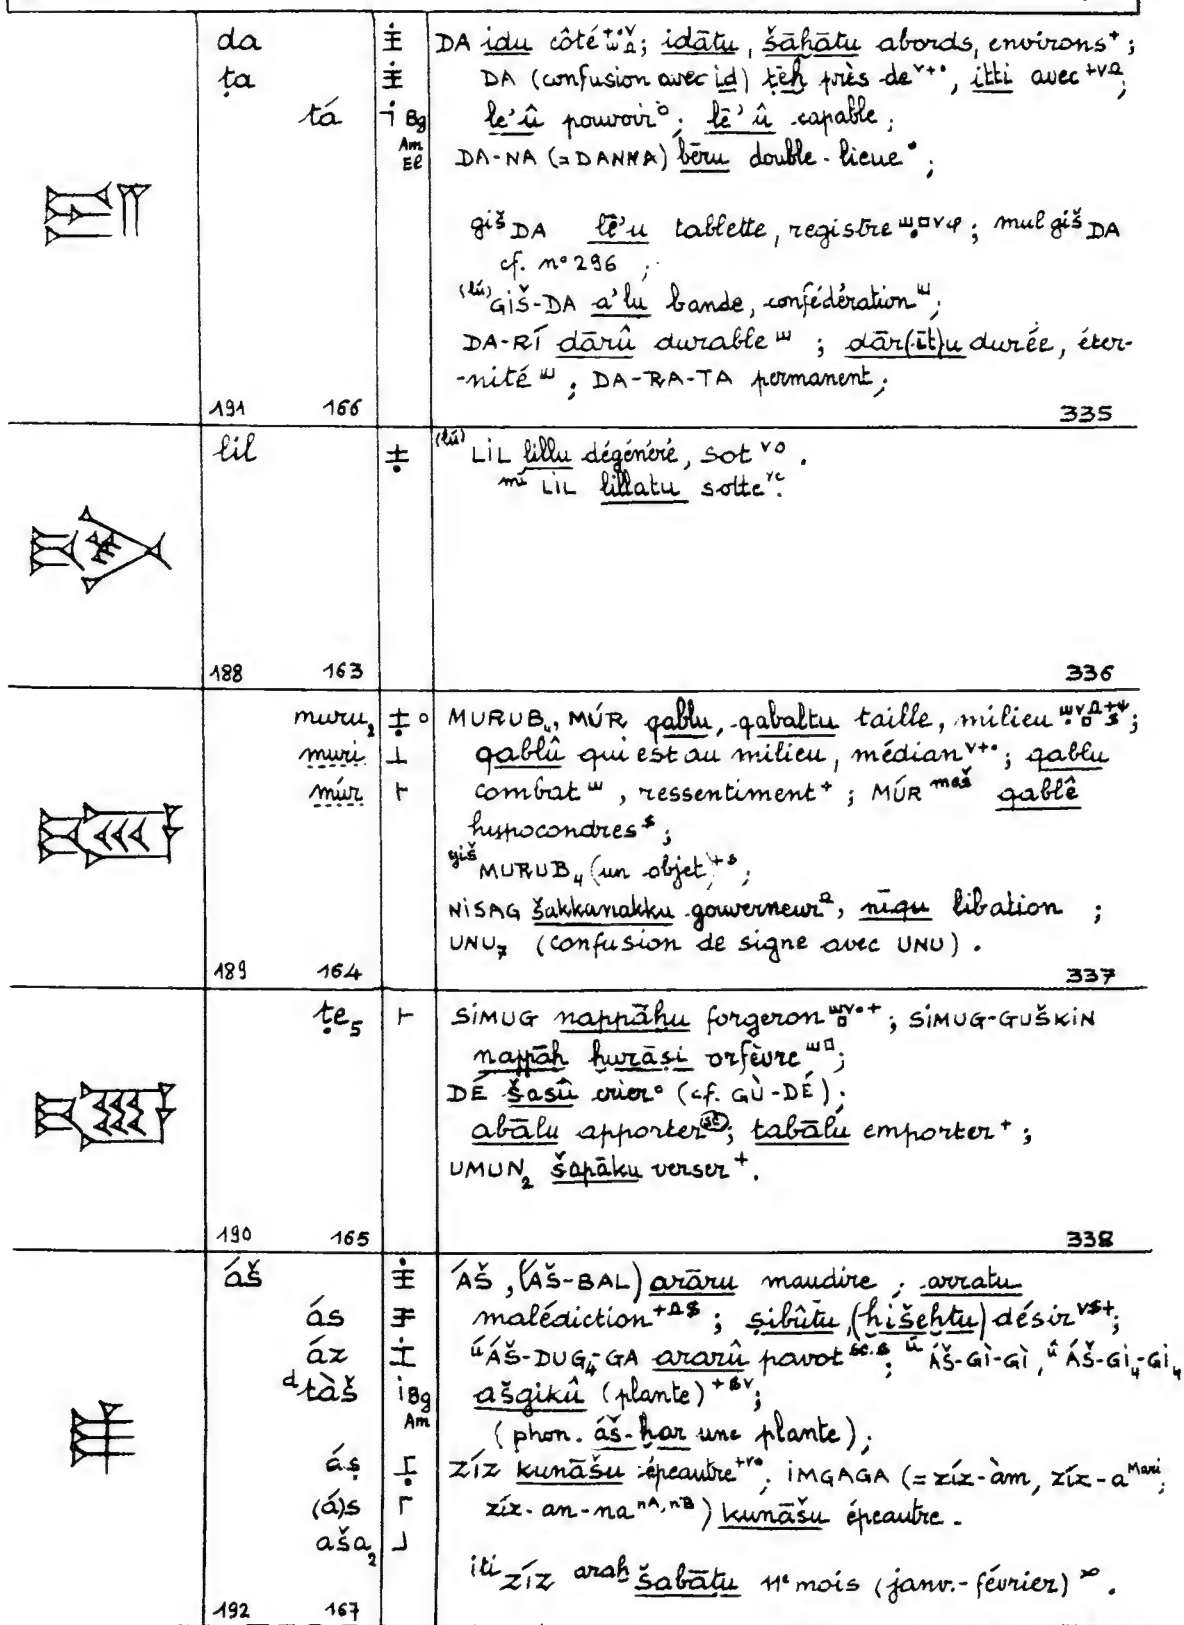 da DA idu côté; idātu, šāhātu abords, environs⁺;
ṭa DA (confusion avec id) ṭēḫ près de, itti avec;
tá Bg le'û pouvoir°; lē'û capable;
Am
El DA-NA (=DANNA) bēru double-lieue;
giš DA lē'u tablette, registre; mul giš DA
cf. n° 296;
(lú) GIŠ-DA a'lu bande, confédération;
DA-RÍ dārû durable; dār(īt)u durée, éter-
-nité; DA-RA-TA permanent;
191 166 335
lil (lú) LIL lillu dégénéré, sot.
mí LIL lillatu sotte.
188 163 336
muru₂ MURUB₄, MÚR qablu, qabaltu taille, milieu;
muri qablû qui est au milieu, médian; qablu
múr combat, ressentiment⁺; MÚR meš qablê
hypocondres;
giš MURUB₄ (un objet);
NISAG šakkanakku gouverneur, nīqu libation;
UNU₇ (confusion de signe avec UNU).
189 164 337
ṭe₅ SIMUG nappāḫu forgeron; SIMUG-GUŠKIN
nappāḫ ḫurāṣi orfèvre;
DÉ šasû crier° (cf. GÙ-DÉ);
abālu apporter; tabālu emporter⁺;
UMUN₂ šapāku verser⁺.
190 165 338
áš ÁŠ, (ÁŠ-BAL) arāru maudire; arratu
ás malédiction; ṣibûtu, (ḫišeḫtu) désir;
áz ú ÁŠ-DUG₄-GA ararû pavot; ú ÁŠ-GÌ-GÌ, ú ÁŠ-GI₄-GI₄
d tàš Bg ašgikû (plante);
Am (phon. áš-ḫar une plante);
áṣ ZÍZ kunāšu épeautre; IMGAGA (= zíz-àm, zíz-a Mari,
(á)s zíz-an-na nA, nB) kunāšu épeautre.
aša₂
iti ZÍZ araḫ šabāṭu 11e mois (janv.-février).
192 167